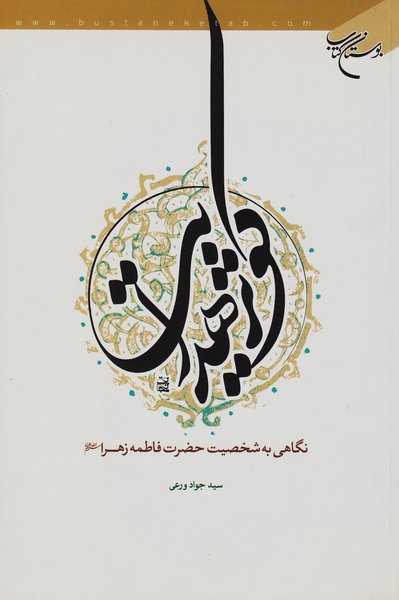 www.bustaneketab.com
بوستان کتاب
کوثر هدایت
نگاهی به شخصیت حضرت فاطمه زهرا
سید جواد ورعی